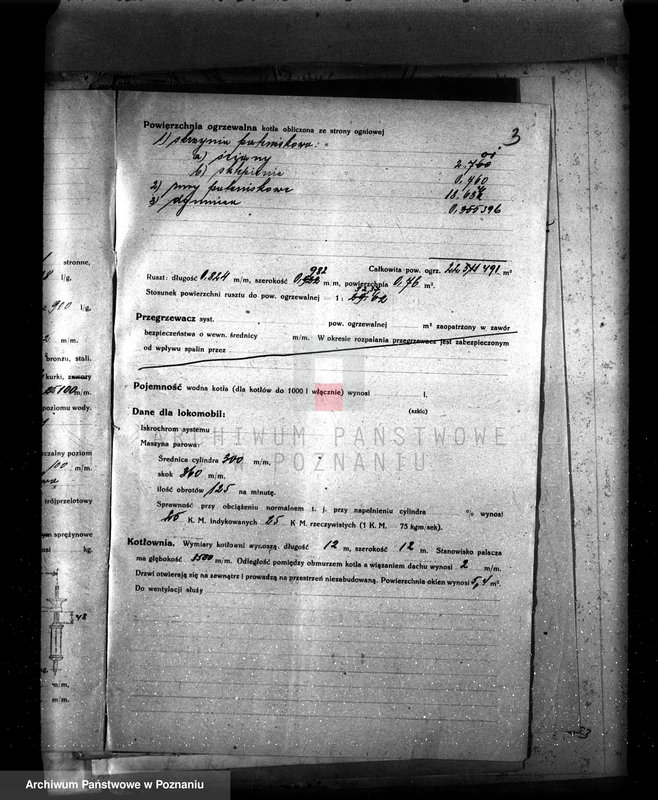 3
Powierzchnia ogrzewalna kotła obliczona ze strony ogniowej
1) skrzynia paleniskowa:
a) ściany 2.760
b) sklepienie 0.460
2) rury paleniskowe 18.
3) dymnica 0,
Całkowita pow. ogrz. m²
Ruszt: długość 0.824 m/m, szerokość 932 m/m, powierzchnia 0,76 m².
Stosunek powierzchni rusztu do pow. ogrzewalnej — 1 :
Przegrzewacz syst. pow. ogrzewalnej m² zaopatrzony w zawór
bezpieczeństwa o wewn. średnicy m/m. W okresie rozpalania przegrzewacz jest zabezpieczonym
od wpływu spalin przez
Pojemność wodna kotła (dla kotłów do 1000 l włącznie) wynosi l.
(szkic)
Dane dla lokomobil:
Iskrochron systemu
Maszyna parowa:
Średnica cylindra 300 m/m.
skok 360 m/m.
ilość obrotów 125 na minutę.
Sprawność przy obciążeniu normalnem t. j. przy napełnieniu cylindra % wynosi
25 K. M. indykowanych 25 K M. rzeczywistych (1 K.M. — 75 kgm/sek).
Kotłownia. Wymiary kotłowni wynoszą: długość 12 m, szerokość 12 m. Stanowisko palacza
ma głębokość 3500 m/m. Odległość pomiędzy obmurzem kotła a wiązaniem dachu wynosi 2 m/m.
Drzwi otwierają się na zewnątrz i prowadzą na przestrzeń niezabudowaną. Powierzchnia okien wynosi 5,4 m².
Do wentylacji służy
stronne,
l/g.
900 l/g.
m/m.
bronzu, stali.
kurki, zawory
100 m/m.
poziomu wody.
czalny poziom
100 m/m.
trójprzelotowy
ym sprężynowe
osi kg.
48
m/m.
m/m.
ARCHIWUM PAŃSTWOWE
W POZNANIU
Archiwum Państwowe w Poznaniu